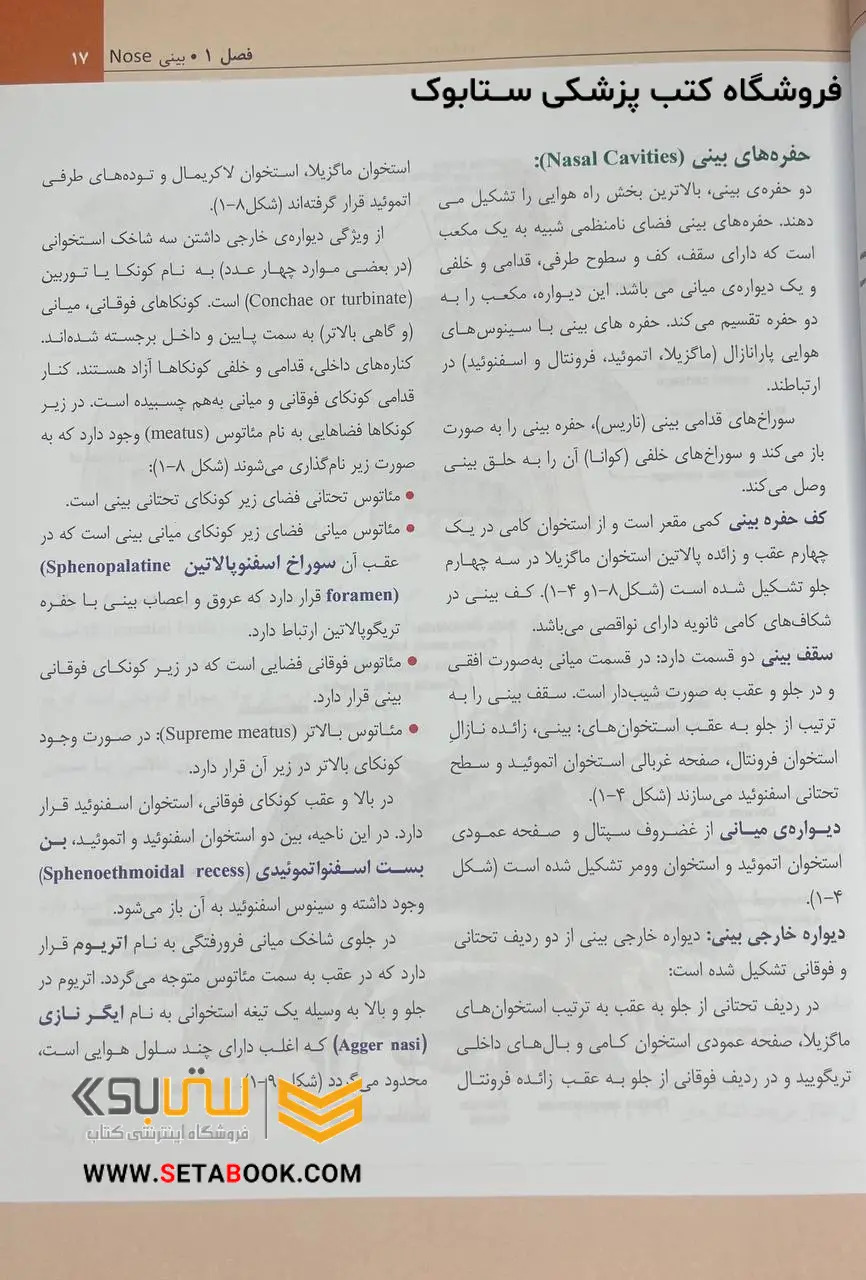 فصل ۱ • بینی Nose ۱۷
فروشگاه کتب پزشکی ستابوک
حفره‌های بینی (Nasal Cavities):
دو حفره‌ی بینی، بالاترین بخش راه هوایی را تشکیل می
دهند. حفره‌های بینی فضای نامنظمی شبیه به یک مکعب
است که دارای سقف، کف و سطوح طرفی، قدامی و خلفی
و یک دیواره‌ی میانی می باشد. این دیواره، مکعب را به
دو حفره تقسیم می‌کند. حفره های بینی با سینوس‌های
هوایی پارانازال (ماگزیلا، اتموئید، فرونتال و اسفنوئید) در
ارتباطند.
سوراخ‌های قدامی بینی (ناریس)، حفره بینی را به صورت
باز می‌کند و سوراخ‌های خلفی (کوانا) آن را به حلق بینی
وصل می‌کند.
کف حفره بینی کمی مقعر است و از استخوان کامی در یک
چهارم عقب و زائده پالاتین استخوان ماگزیلا در سه چهارم
جلو تشکیل شده است (شکل۸-۱و ۴-۱). کف بینی در
شکاف‌های کامی ثانویه دارای نواقصی می‌باشد.
سقف بینی دو قسمت دارد: در قسمت میانی به‌صورت افقی
و در جلو و عقب به صورت شیب‌دار است. سقف بینی را به
ترتیب از جلو به عقب استخوان‌های: بینی، زائده نازالِ
استخوان فرونتال، صفحه غربالی استخوان اتموئید و سطح
تحتانی اسفنوئید می‌سازند (شکل ۴-۱).
دیواره‌ی میانی از غضروف سپتال و صفحه عمودی
استخوان اتموئید و استخوان وومر تشکیل شده است (شکل
۴-۱).
دیواره خارجی بینی: دیواره خارجی بینی از دو ردیف تحتانی
و فوقانی تشکیل شده است:
در ردیف تحتانی از جلو به عقب به ترتیب استخوان‌های
ماگزیلا، صفحه عمودی استخوان کامی و بال‌های داخلی
تریگویید و در ردیف فوقانی از جلو به عقب زائده فرونتال
استخوان ماگزیلا، استخوان لاکریمال و توده‌های طرفی
اتموئید قرار گرفته‌اند (شکل۸-۱).
از ویژگی دیواره‌ی خارجی داشتن سه شاخک استخوانی
(در بعضی موارد چهار عدد) به نام کونکا یا توربین
(Conchae or turbinate) است. کونکاهای فوقانی، میانی
(و گاهی بالاتر) به سمت پایین و داخل برجسته شده‌اند.
کناره‌های داخلی، قدامی و خلفی کونکاها آزاد هستند. کنار
قدامی کونکای فوقانی و میانی به‌هم چسبیده است. در زیر
کونکاها فضاهایی به نام مئاتوس (meatus) وجود دارد که به
صورت زیر نام‌گذاری می‌شوند (شکل ۸-۱):
• مئاتوس تحتانی فضای زیر کونکای تحتانی بینی است.
• مئاتوس میانی فضای زیر کونکای میانی بینی است که در
عقب آن سوراخ اسفنوپالاتین (Sphenopalatine
foramen) قرار دارد که عروق و اعصاب بینی با حفره
تریگوپالاتین ارتباط دارد.
• مئاتوس فوقانی فضایی است که در زیر کونکای فوقانی
بینی قرار دارد.
• مئاتوس بالاتر (Supreme meatus): در صورت وجود
کونکای بالاتر در زیر آن قرار دارد.
در بالا و عقب کونکای فوقانی، استخوان اسفنوئید قرار
دارد. در این ناحیه، بین دو استخوان اسفنوئید و اتموئید، بن
بست اسفنواتموئیدی (Sphenoethmoidal recess)
وجود داشته و سینوس اسفنوئید به آن باز می‌شود.
در جلوی شاخک میانی فرورفتگی به نام اتریوم قرار
دارد که در عقب به سمت مئاتوس متوجه می‌گردد. اتریوم در
جلو و بالا به وسیله یک تیغه استخوانی به نام ایگر نازی
(Agger nasi) که اغلب دارای چند سلول هوایی است،
محدود می‌گردد (شکل ۹-۱).
ستابوک
فروشگاه اینترنتی کتاب
WWW.SETABOOK.COM